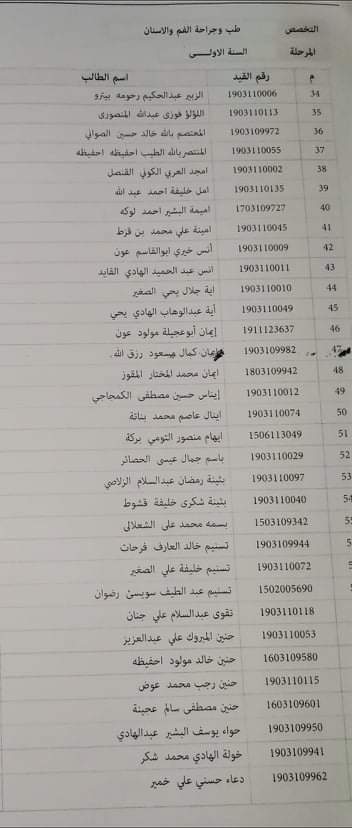 التخصص طب وجراحة الفم والاسنان
المرحلة السنة الاولى
م رقم القيد اسم الطالب
34 1903110006 الزبير عبدالحكيم رحومه بيترو
35 1903110113 اللؤلؤ فوزى عبدالله المنصورى
36 1903109972 المعتصم بالله خالد حسين الصوالي
37 1903110055 المنتصر بالله الطيب احفيظه احفيظه
38 1903110002 امجد العربي الكوني القنصل
39 1903110135 امل خليفة احمد عبد الله
40 1703109727 اميمة البشير احمد لوكه
41 1903110045 امينة علي محمد بن قرط
42 1903110009 أنس خيري ابوالقاسم عون
43 1903110011 انس عبد الحميد الهادي القايد
44 1903110010 اية جلال يحي الصغير
45 1903110049 أية عبدالوهاب الهادي يحي
46 1911123637 إيمان أبوعجيلة مولود عون
47 1903109982 إيمان كمال مسعود رزق الله.
48 1803109942 ايمان محمد المختار المقوز
49 1903110012 إيناس حسين مصطفى الكمجاجي
50 1903110074 اينال عاصم محمد بنانة
51 1506113049 ايهام منصور التومي بركة
52 1903110029 باسم جمال عيسى الحصائر
53 1903110097 بثينة رمضان عبدالسلام الزلاصي
54 1903110040 بثينة شكرى خليفة قشوط
55 1503109342 بسمه محمد على الشعلالى
5 1903109944 تسنيم خالد العارف فرحات
5 1903110072 تسنيم خليفة علي الصغير
1502005690 تسنيم عبد الطيف سويسي رضوان
1903110118 تقوى عبدالسلام علي جنان
1903110053 حنين المبروك علي عبدالعزيز
1603109580 حنين خالد مولود احفيظه
1903110115 حنين رجب محمد عوض
1603109601 حنين مصطفى سالم عجينة
1903109950 حواء يوسف البشير عبدالهادي
1903109941 خولة الهادي محمد شكر
1903109962 دعاء حسني علي خمير